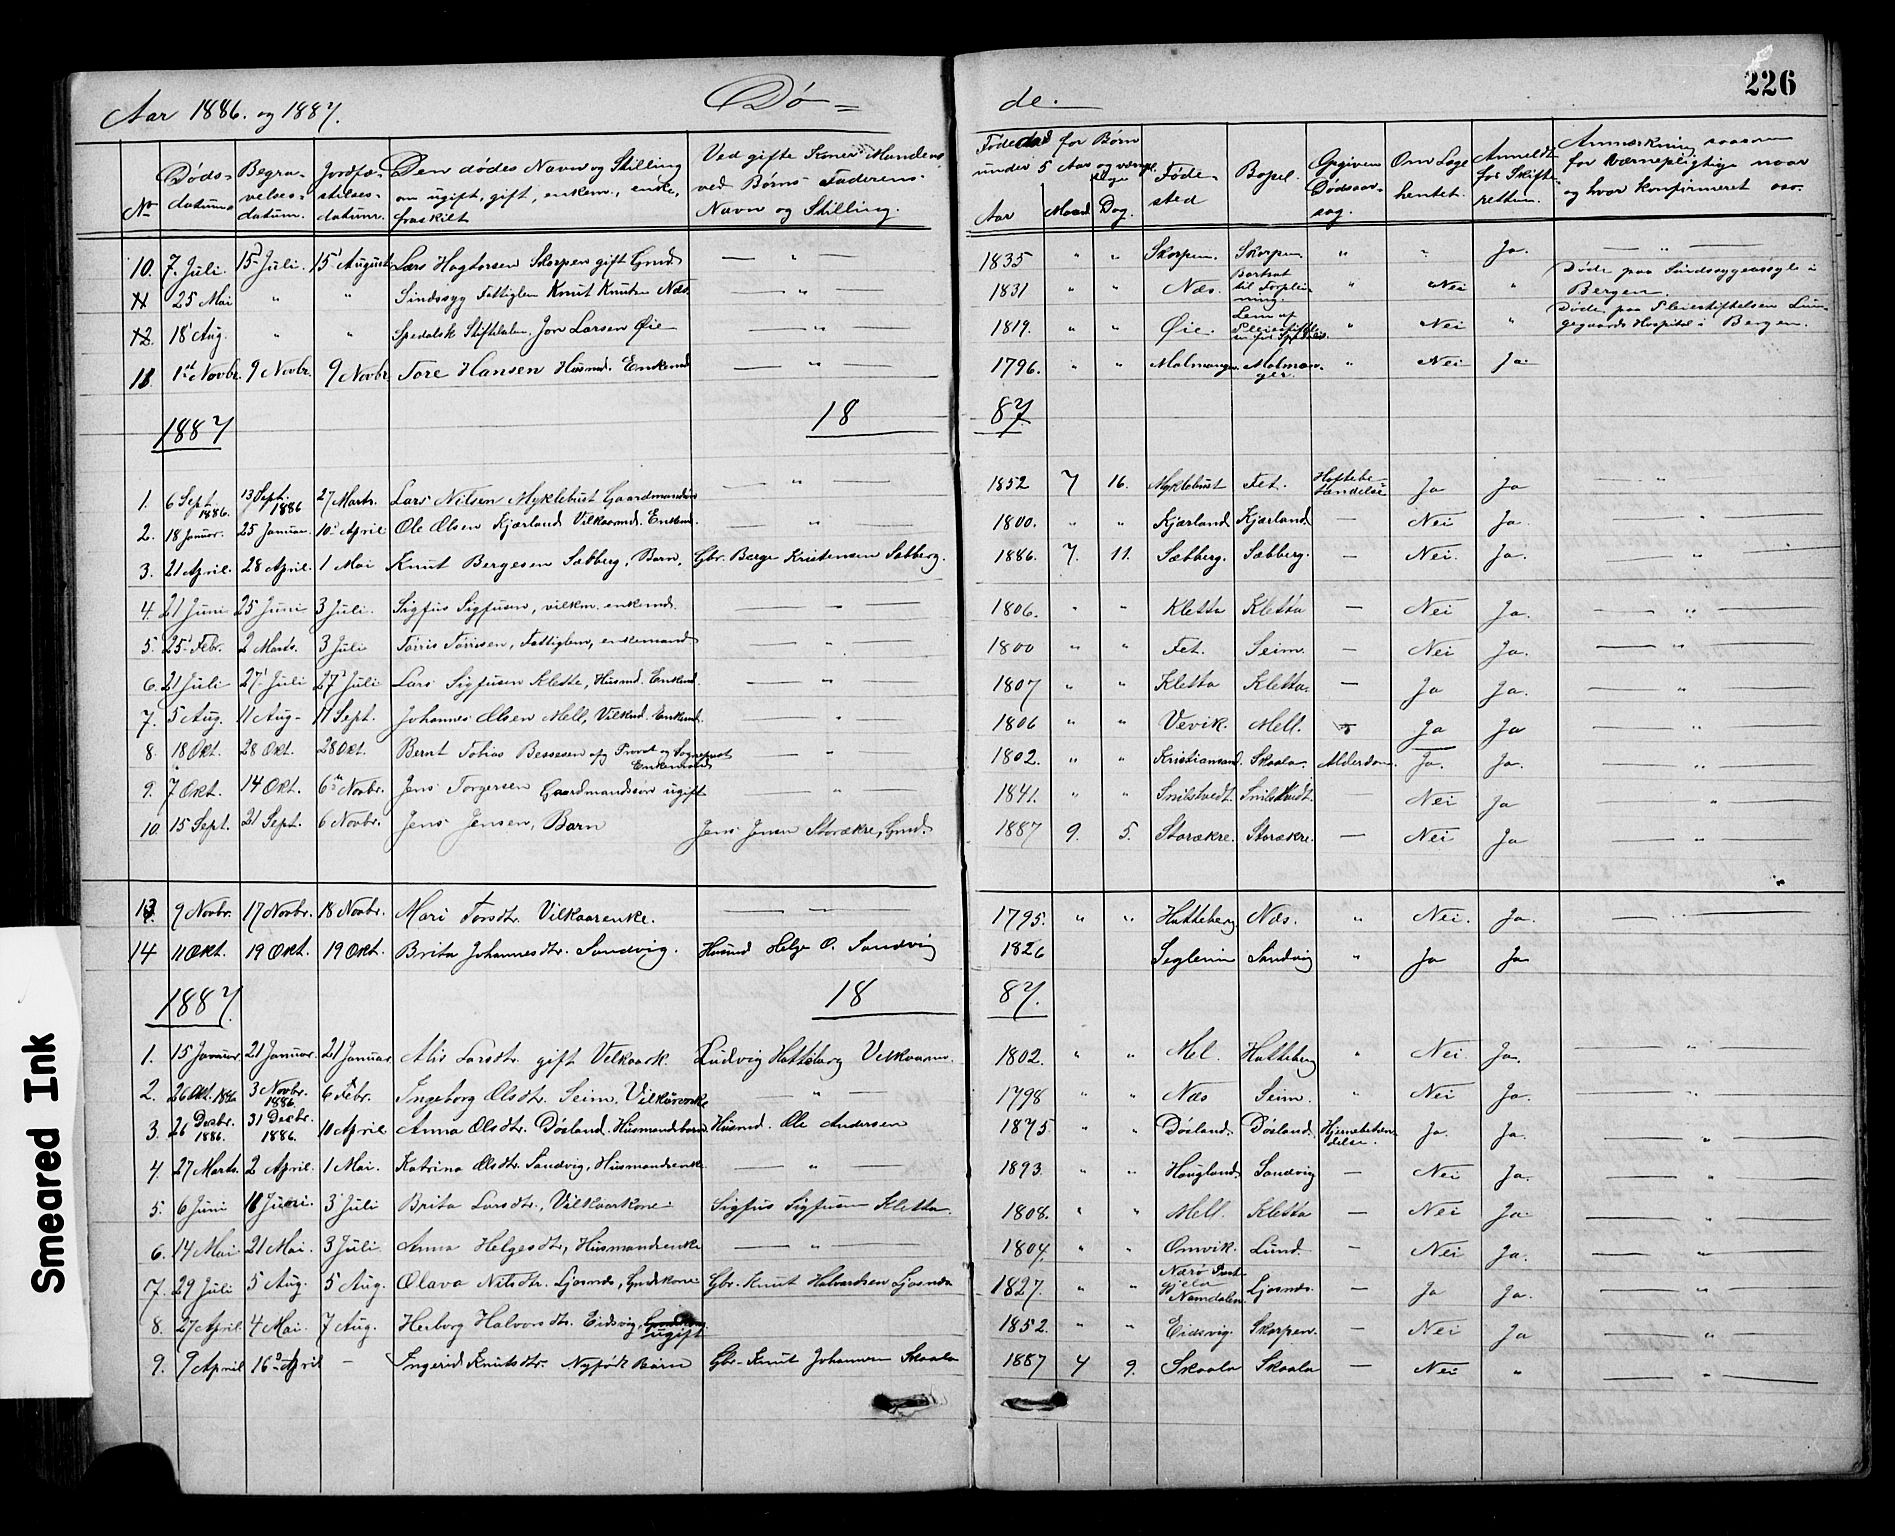 226
Aar 1886. og 1887. Dø= de.
No
Døds-datum
Begra-velses-datum.
Jordfæ-stelses-datum.
Den dødes Navn og Stilling
om ugift, gift, enkem., enke,
fraskilt
Ved gifte Koner Mandens
ved Børns Faderens
Navn og Stilling.
Fødedad for Børn
under 5 Aar og værnepl.
Aar Maaned Dag.
Føde-sted
Bopel.
Opgiven Dødsaar-sag.
Om Læge hentet.
Anmeldt for Skifte-retten.
Anmærkning saasom
for Værnepligtige naar
og hvor konfirmeret osv.
10. 7. Juli. 15 Juli. 15 August Lars Hagtorsen Skorpen gift Gmd — " — 1835 " " Skorpen. Skorpen " " Ja. — " —
11 25 Mai " " Sindssyg Fattiglem Knut Knutsen Næs. — " — 1831 " " Næs. Bortsat til Forplei-ning. " Nei " Døde paa Sindssygeasyle i Bergen.
12. 18 Aug. " " Spedalsk Stiftslem, Jon Larsen Øie — " — 1819. " " Øie. Lem af Pleiestiftel- " Nei " Døde paa Pleiestiftelsen Lun-gegaards Hospital i Bergen.
11 1st Novbr. 9 Novbr. 9 Novbr Tore Hansen Husmd. Enkemd — " — 1796. " " Malmanger. Malman-ger. " Nei Ja
1887 18 87.
1. 6 Sept. 1886. 13 Sept. 1886 27 Marts. Lars Nilsen Myklebust Gaardmandssøn — " — 1852 7 16. Myklebust Fet. Hoftebe-tændelse Ja Ja "
2. 18 Januar. 25 Januar. 10 April Ole Olsen Kjærland Vilkaarmd. Enkemd. — " — 1800. " " Kjærland Kjærland — Nei Ja. — " —
3. 21 April. 28 April. 1 Mai Knut Bergesen Sæbberg, Barn. Gbr. Berge Kristensen Sæbberg. 1886. 7. 11. Sæbberg. Sæbberg. — Nei. Ja. — " —
4. 21 Juni 25 Juni 3 Juli. Sigfus Sigfusen, vilkm. enkemd. — " — 1806. " " Kletta Kletta — Nei Ja. — " —
5. 25 Febr. 2 Marts. 3 Juli Torris Torrisen, Fattiglem, enkemand — " — 1800 " " Fet. Seim. — Nei Ja. — " —
6. 21 Juli 27 Juli 27 Juli Lars Sigfusen Kletta, Husmd. Enkemd. — " — 1807 " " Kletta Kletta. — Ja Ja. — " —
7. 5 Aug. 11 Aug- 11 Sept. Johannes Olsen Mell, Vilkmd. Enkemd. — " — 1806 " " Vevik. Mell. Ja Ja — " —
8. 18 Okt. 28 Okt. 28 Okt. Bernt Tobias Bessesen afg Provst og Sognepræst Enkemand — " — 1802. " " Kristiansand. Skaala. Alderdom. Ja. Ja. — " —
9. 7 Okt. 14 Okt. 6te Novbr. Jens Torgersen Gaardmandssøn ugift — " — 1841. " " Snilstvedt. Snilstvedt. — Nei Ja — " —
10. 15 Sept. 21 Sept. 6 Novbr. Jens Jensen, Barn Jens Jensen Storækre, Gmd. 1887 9. 5. Storækre. Storækre. — Nei Ja — " —
13. 9 Novbr. 17 Novbr. 18 Novbr. Mari Torsdtr. Vilkaarenke. — — 1795. " " Hatteberg Næs. " Nei. Ja.
14 11 Okt. 19 Okt. 19 Okt. Brita Johannesdtr. Sandvig. Husmd Helge O. Sandvig 1826 Seglem Sandvig " Ja Ja
1887. 18 87.
1. 15 Januar. 21 Januar. 21 Januar Alis Larsdtr. gift Velkaark. Ludvig Hatteberg Velkaarm. 1802. " " Mel. Hatteberg " Nei. Ja. — " —
2. 26 Okt. 1886 3 Novbr. 1886. 6 Febr. Ingeborg Olsdtr. Seim, Vilkårenke — " — 1798 " " Næs Seim. " Nei Ja. — " —
3. 26 Decbr. 1886. 31 Decbr. 1886. 10 April Anna Olsdtr. Døsland. Husmandbarn. Husmd. Ole Andersen 1875 " " Døsland Døsland Hjernebetæn-delse. Ja. Ja. — " —
4. 27 Marts. 2 April. 1 Mai. Katrina Olsdtr. Sandvig, Husmandsenke — " — 1893. " " Haugland Sandvig — Nei Ja. — " —
5. 6 Juni 18 Juni. 3 Juli Brita Larsdtr., Vilkaarkone Sigfus Sigfusen Kletta. 1808. " " Mell. Kletta — Nei Ja. — " —
6. 14 Mai. 21 Mai. 3 Juli. Anna Helgesdtr, Husmandsenke — " — 1804. " " Omvik. Lund. — Nei Ja. — " —
7. 29 Juli 5 Aug. 5 Aug. Olava Nilsdtr. Ljosnes, Gmdskone Gbr. Knut Halvardsen Ljosnes 1827. " " Nærø Præst-gjeld Namdalen. Ljosnes. — Ja Ja. — " —
8. 27 April. 4 Mai. 7 Aug. Herborg Halvorsdtr. Eidsvig, ugift 1852. " " Eidsvig. Skorpen. — Nei Ja — " —
9. 9 April 16 April — Ingerid Knutsdtr. Nyfødt Barn Gbr. Knut Johannesen Skaala 1887 4 9. Skaala Skaala — Nei " — " —
Smeared Ink